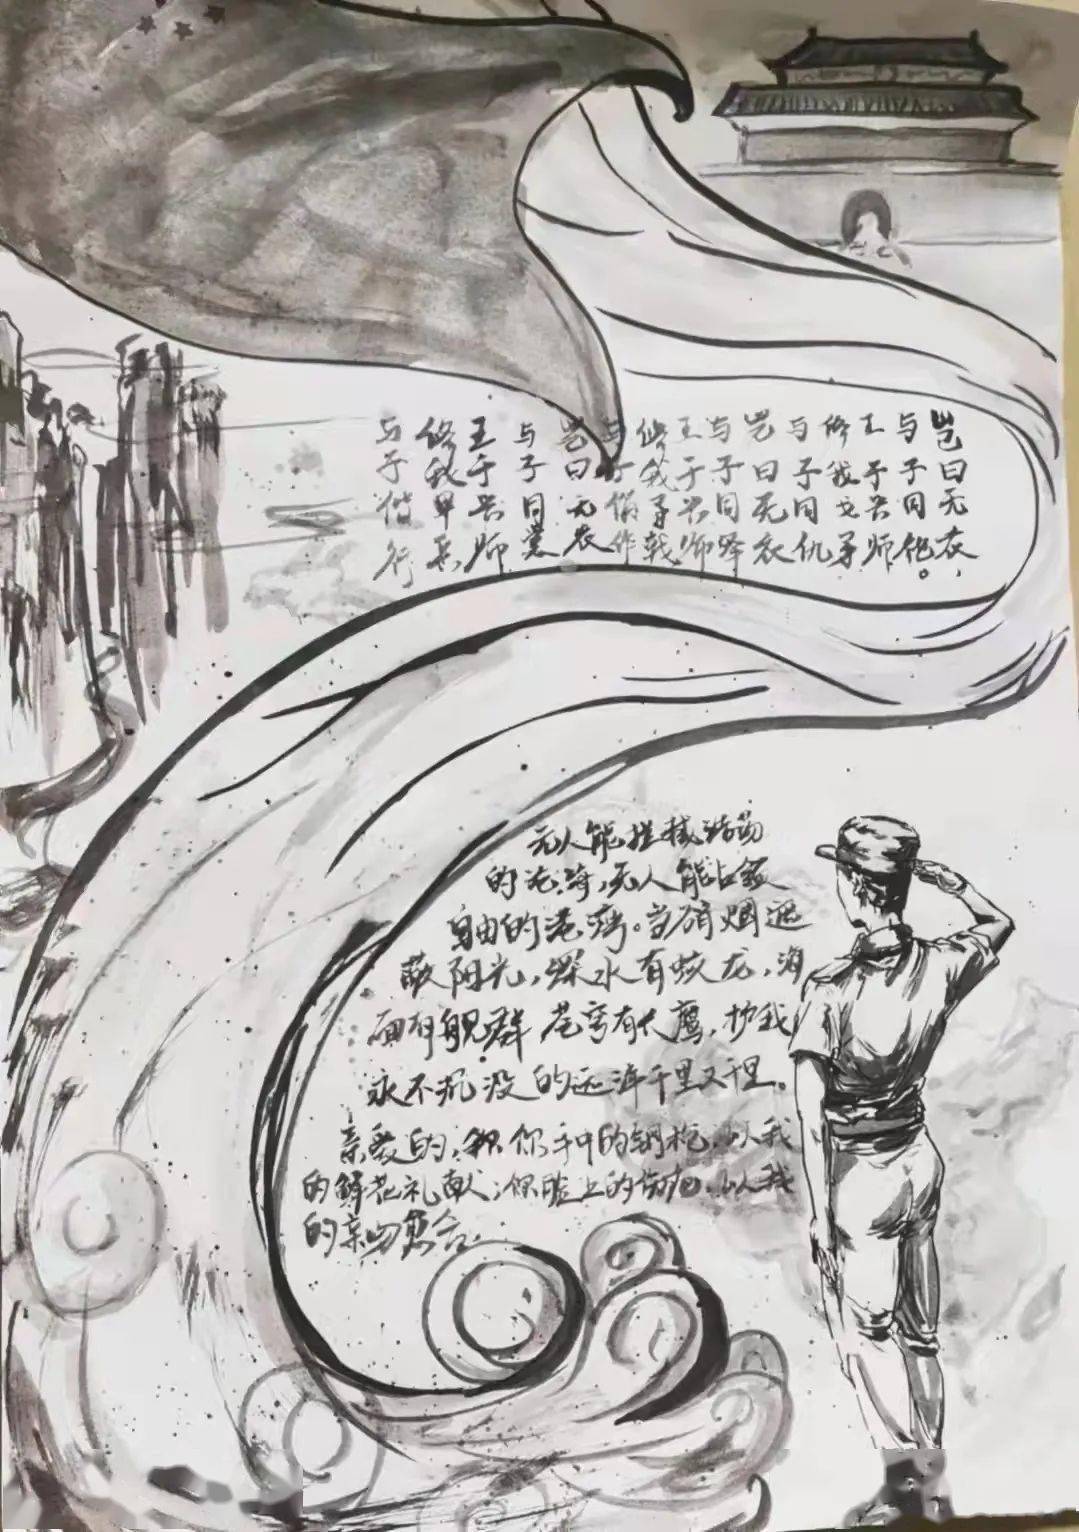 岂曰无衣，
与子同袍。
王于兴师
修我戈矛
与子同仇
岂曰无衣
与子同泽
王于兴师
修我矛戟
与子偕作
岂曰无衣
与子同裳
王于兴师
修我甲兵
与子偕行
无人能拦截浩荡
的沧海，无人能占领
自由的港湾。当硝烟遮
蔽阳光，深水有蛟龙，海
面有舰群 苍穹有大鹰，护我
永不沉没的远洋千里又千里。
亲爱的，你手中的钢枪，以我
的鲜花礼献；你脸上的伤疤，以我
的亲吻愈合.